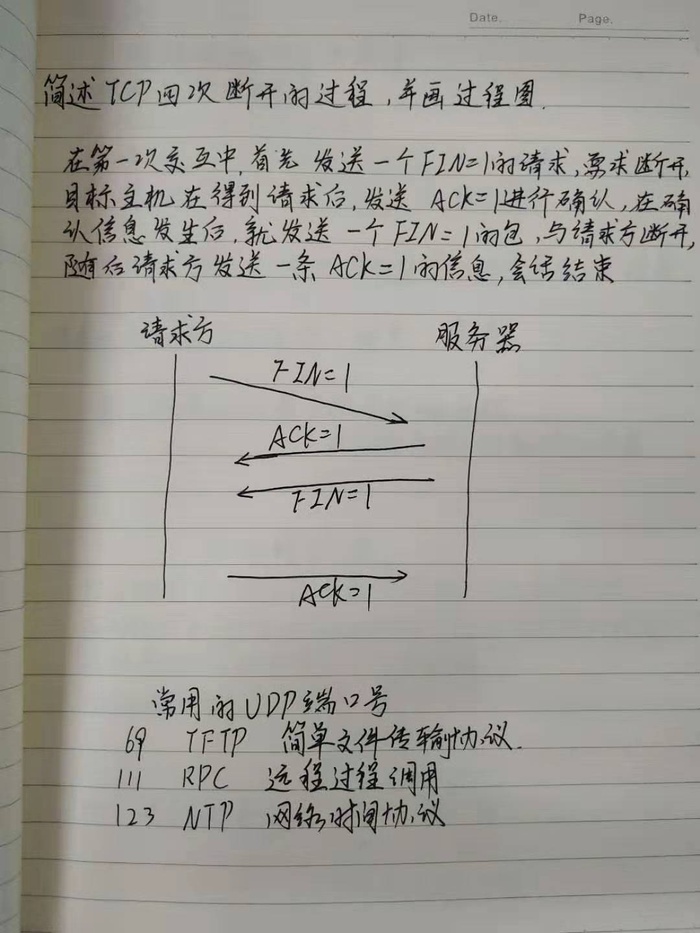 Date. Page.
简述TCP四次断开的过程,并画过程图.
在第一次交互中,首先发送一个FIN=1的请求,要求断开,
目标主机在得到请求后,发送 ACK=1进行确认,在确
认信息发生后,就发送一个FIN=1的包,与请求方断开,
随后请求方发送一条ACK=1的信息,会话结束
请求方 服务器
FIN=1
ACK=1
FIN=1
ACK=1
常用的UDP端口号
69 TFTP 简单文件传输协议.
111 RPC 远程过程调用
123 NTP 网络时间协议